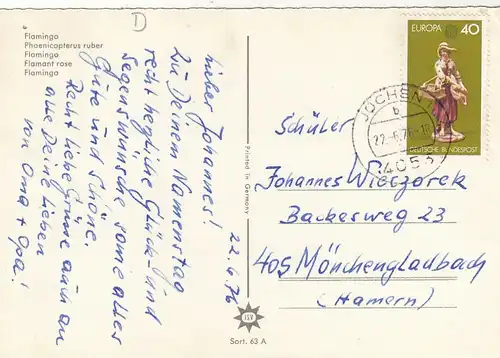 D
Flamingo
Phoenicopterus ruber
Flamingo
Flamant rose
Flamingo
22.6.76
Lieber Johannes!
Zu Deinem Namenstag
recht herzliche Glück- und
Segenswünsche sowie alles
Gute und Schöne.
Recht liebe Grüße auch an
alle Deine Lieben
von Oma + Opa!
Printed in Germany
ISV
Sort. 63 A
EUROPA 40
DEUTSCHE BUNDESPOST
JÜCHEN
b
22.-6.76
4053
Schüler
Johannes Wieczorek
Backesweg 23
405 Mönchengladbach
(Hamern)